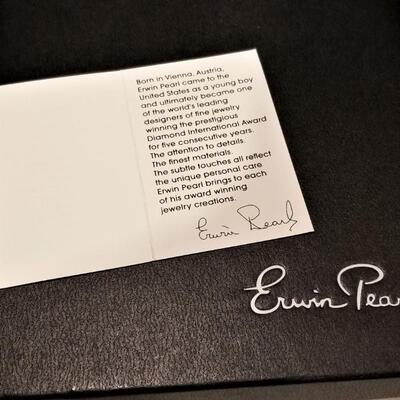 Born in Vienna, Austria,
Erwin Pearl came to the
United States as a young boy
and ultimately became one
of the world's leading
designers of fine jewelry
winning the prestigious
Diamond International Award
for five consecutive years.
The attention to details.
The finest materials.
The subtle touches all reflect
the unique personal care
Erwin Pearl brings to each
of his award winning
jewelry creations.
Erwin Pearl
Erwin Pear